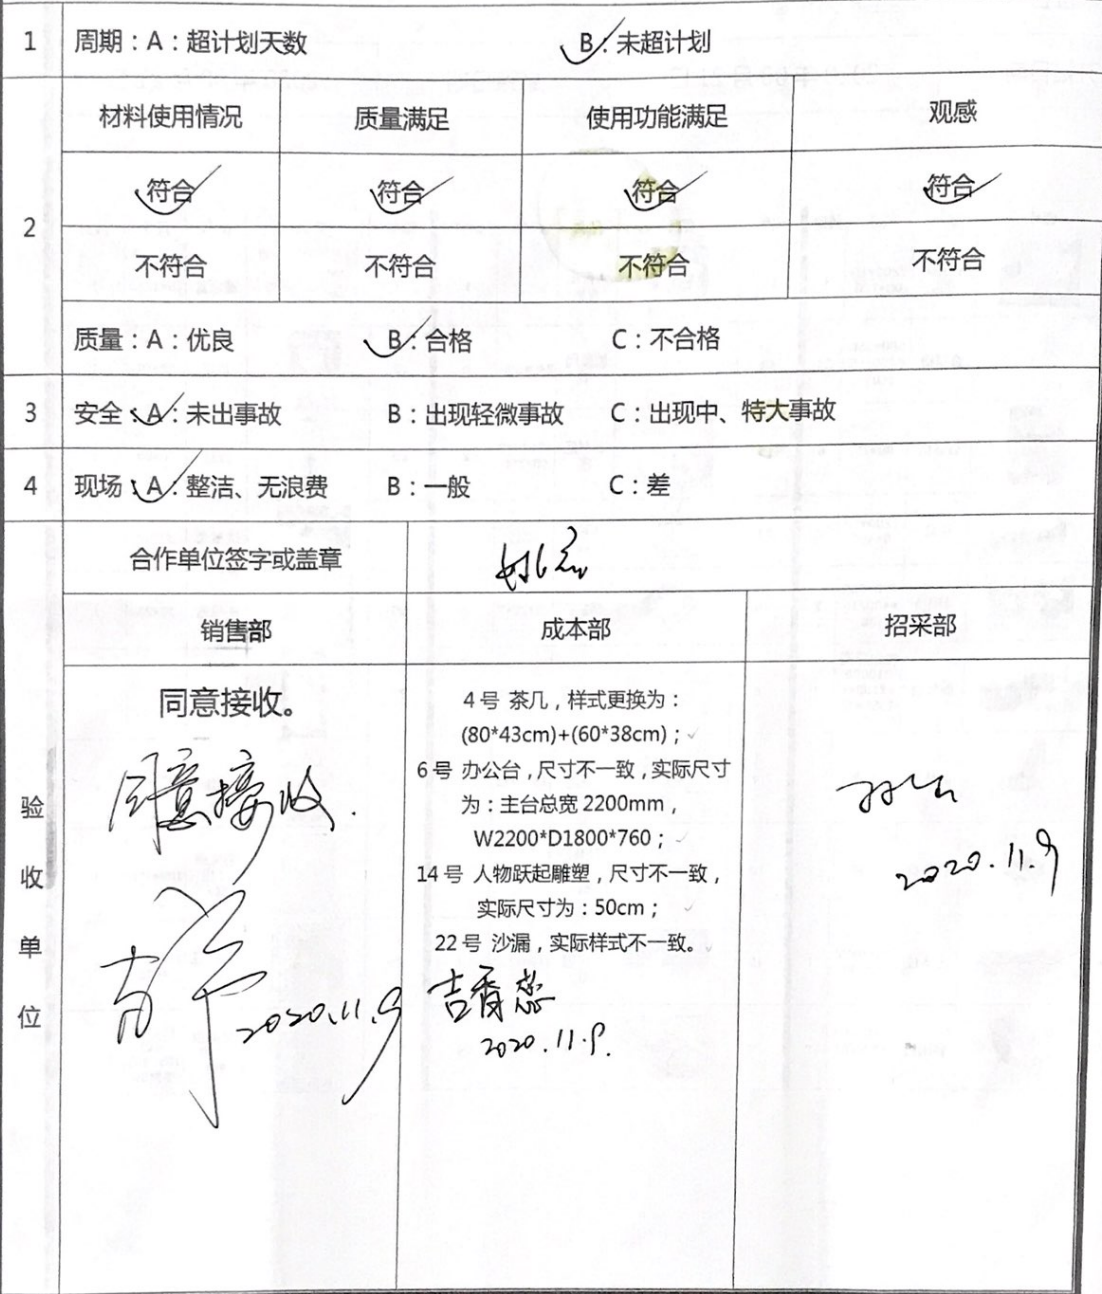 1 周期：A：超计划天数 B：未超计划
材料使用情况 质量满足 使用功能满足 观感
符合 符合 符合 符合
2
不符合 不符合 不符合 不符合
质量：A：优良 B：合格 C：不合格
3 安全：A：未出事故 B：出现轻微事故 C：出现中、特大事故
4 现场：A：整洁、无浪费 B：一般 C：差
合作单位签字或盖章
销售部 成本部 招采部
验收单位
同意接收。
同意接收.
2020.11.9
4号 茶几，样式更换为：
(80*43cm)+(60*38cm)；
6号 办公台，尺寸不一致，实际尺寸
为：主台总宽2200mm，
W2200*D1800*760；
14号 人物跃起雕塑，尺寸不一致，
实际尺寸为：50cm；
22号 沙漏，实际样式不一致。
吉香蕊
2020.11.9.
2020.11.9